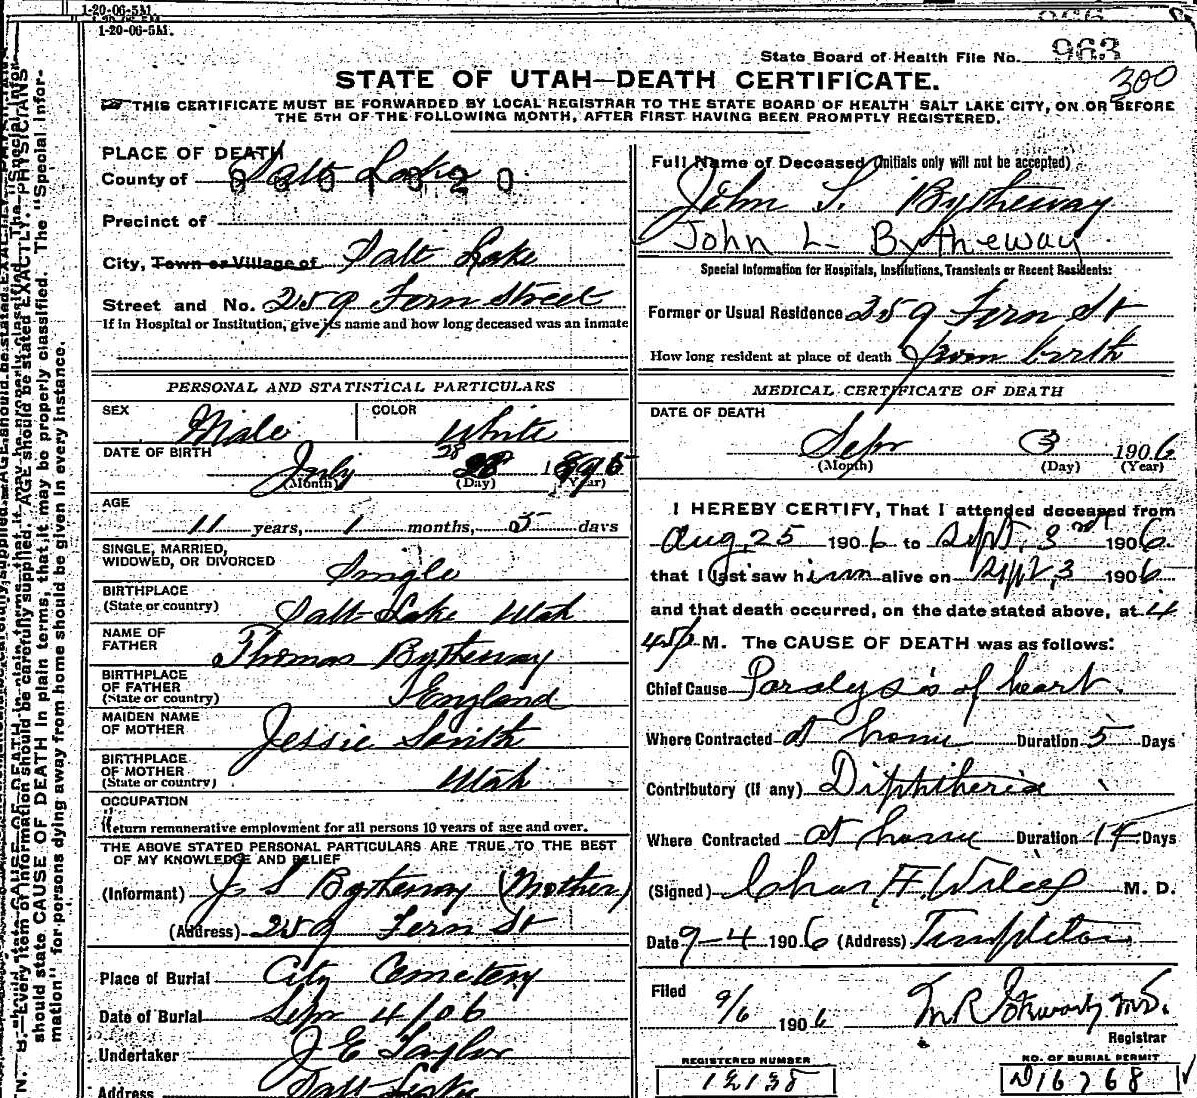 1-20-06-5M.
1-20-06-5M.
State Board of Health File No. 963
300
STATE OF UTAH—DEATH CERTIFICATE.
THIS CERTIFICATE MUST BE FORWARDED BY LOCAL REGISTRAR TO THE STATE BOARD OF HEALTH SALT LAKE CITY, ON OR BEFORE
THE 5TH OF THE FOLLOWING MONTH, AFTER FIRST HAVING BEEN PROMPTLY REGISTERED.
PLACE OF DEATH
County of Salt Lake
Precinct of
City, Town or Village of Salt Lake
Street and No. 259 Fern Street
If in Hospital or Institution, give its name and how long deceased was an inmate
PERSONAL AND STATISTICAL PARTICULARS
SEX Male COLOR White
DATE OF BIRTH July 28 1895
(Month) (Day) (Year)
AGE
11 years, 1 months, 5 days
SINGLE, MARRIED,
WIDOWED, OR DIVORCED Single
BIRTHPLACE
(State or country) Salt Lake Utah
NAME OF
FATHER Thomas Bytheway
BIRTHPLACE
OF FATHER
(State or country) England
MAIDEN NAME
OF MOTHER Jessie Smith
BIRTHPLACE
OF MOTHER
(State or country) Utah
OCCUPATION
Return remunerative employment for all persons 10 years of age and over.
THE ABOVE STATED PERSONAL PARTICULARS ARE TRUE TO THE BEST
OF MY KNOWLEDGE AND BELIEF
(Informant) J S Bytheway (Mother)
(Address) 259 Fern St
Place of Burial City Cemetery
Date of Burial Sep 4/06
Undertaker J E Taylor
Address Salt Lake
Full Name of Deceased (Initials only will not be accepted)
John L. Bytheway
John L Bytheway
Special Information for Hospitals, Institutions, Transients or Recent Residents:
Former or Usual Residence 259 Fern St
How long resident at place of death From birth
MEDICAL CERTIFICATE OF DEATH
DATE OF DEATH
Sepr 3 1906
(Month) (Day) (Year)
I HEREBY CERTIFY, That I attended deceased from
Aug. 25 1906 to Sept. 3rd 1906
that I last saw him alive on Sept. 3 1906
and that death occurred, on the date stated above, at 4
45 P M. The CAUSE OF DEATH was as follows:
Chief Cause Paralysis of heart.
Where Contracted at home Duration 5 Days
Contributory (if any) Diphtheria
Where Contracted at home Duration 14 Days
(Signed) Chas F. Wilcox M. D.
Date 9-4 1906 (Address) Templeton
Filed 9/6 1906
Registrar
REGISTERED NUMBER
12135
NO. OF BURIAL PERMIT
D16768
N. B.—Every item of information should be carefully supplied. AGE should be stated EXACTLY. PHYSICIANS
should state CAUSE OF DEATH in plain terms, that it may be properly classified. The "Special Infor-
mation" for persons dying away from home should be given in every instance.